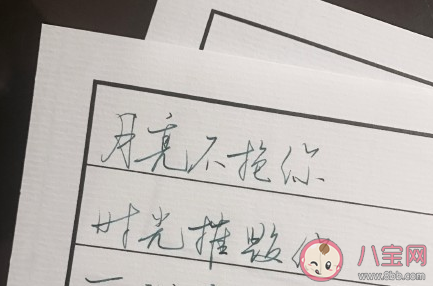 月亮不抱你
时光摧毁你
八宝网
www.8bb.com